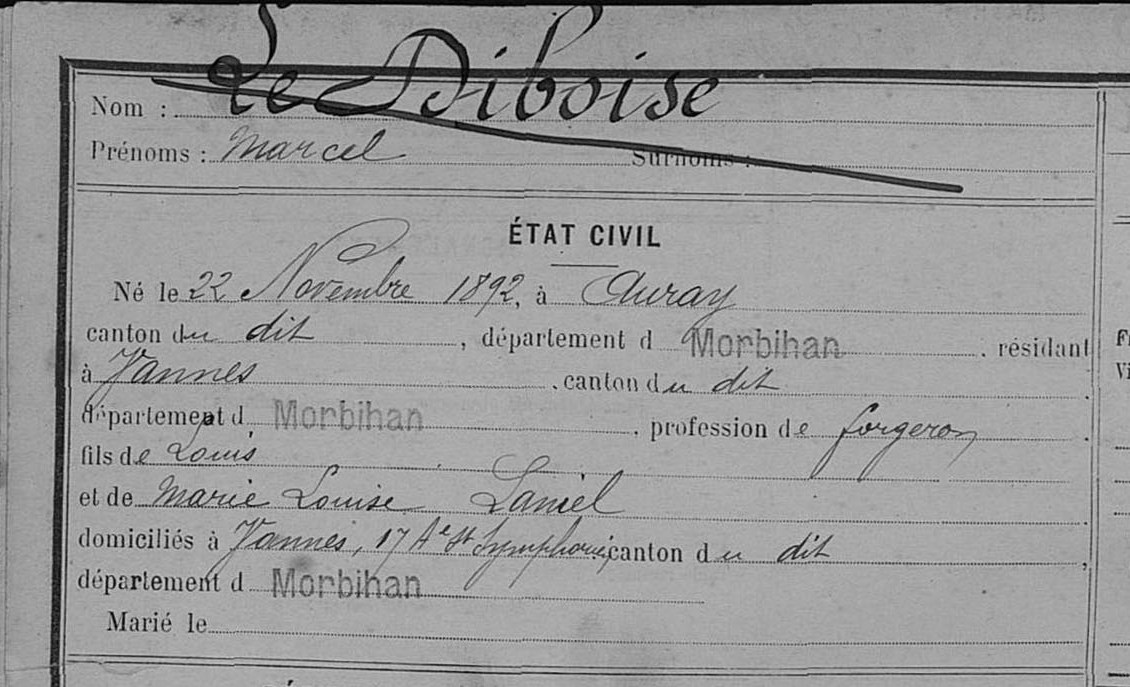 Nom : Le Diboise
Prénoms : Marcel Surnoms :
ÉTAT CIVIL
Né le 22 Novembre 1892, à Auray
canton du dit, département d Morbihan, résidant
à Vannes, canton du dit
département d Morbihan, profession de forgeron
fils de Louis
et de Marie Louise Laniel
domiciliés à Vannes, 17 St canton du dit,
département d Morbihan
Marié le